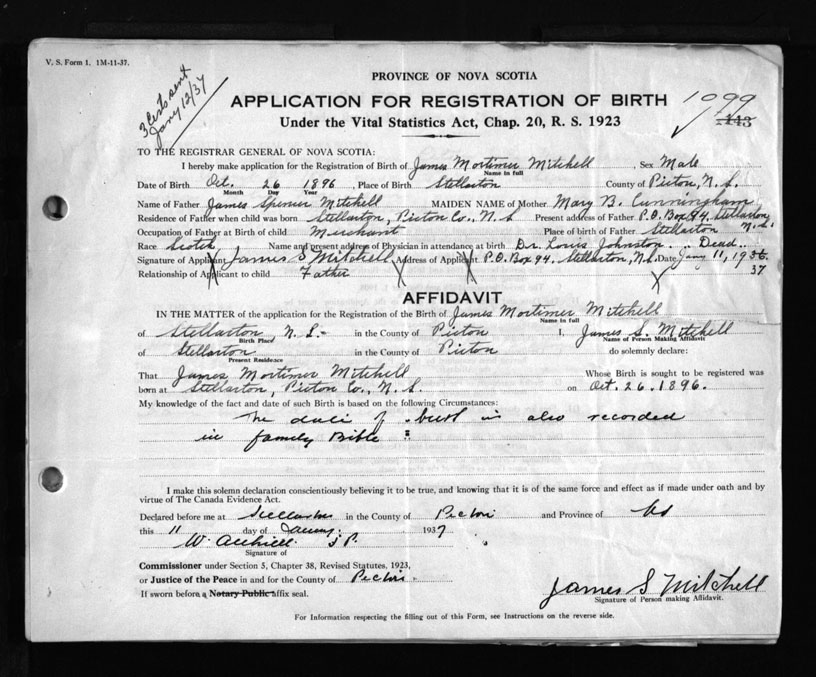 V. S. Form 1. 1M-11-37.
3 certs sent
Jany 12/37
PROVINCE OF NOVA SCOTIA
APPLICATION FOR REGISTRATION OF BIRTH
1099
143
Under the Vital Statistics Act, Chap. 20, R. S. 1923
TO THE REGISTRAR GENERAL OF NOVA SCOTIA:
I hereby make application for the Registration of Birth of James Mortimer Mitchell, Sex Male
Name in full
Date of Birth Oct. 26 1896, Place of Birth Stellarton County of Pictou, N. S.
Month Day Year
Name of Father James Spencer Mitchell MAIDEN NAME of Mother Mary B. Cunningham
Residence of Father when child was born Stellarton, Pictou Co., N. S Present address of Father P.O. Box 94. Stellarton N.S.
Occupation of Father at Birth of child Merchant Place of birth of Father Stellarton
Race Scotch Name and present address of Physician in attendance at birth Dr. Louis Johnston .. Dead..
Signature of Applicant James S Mitchell Address of Applicant P.O. Box 94. Stellarton, N.S. Date Jany 11, 1936.
37
Relationship of Applicant to child Father
AFFIDAVIT
IN THE MATTER of the application for the Registration of the Birth of James Mortimer Mitchell
Name in full
of Stellarton, N. S.- in the County of Pictou I, James S. Mitchell
Birth Place Name of Person Making Affidavit
of Stellarton in the County of Pictou do solemnly declare:
Present Residence
That James Mortimer Mitchell Whose Birth is sought to be registered was
born at Stellarton, Pictou Co., N. S. on Oct. 26. 1896.
My knowledge of the fact and date of such Birth is based on the following Circumstances:
The date of birth is also recorded
in family Bible
I make this solemn declaration conscientiously believing it to be true, and knowing that it is of the same force and effect as if made under oath and by
virtue of The Canada Evidence Act.
Declared before me at Stellarton in the County of Pictou and Province of NS
this 11 day of January. 1937
W. J.P.
Signature of
Commissioner under Section 5, Chapter 38, Revised Statutes, 1923,
or Justice of the Peace in and for the County of Pictou.
If sworn before a Notary Public affix seal.
James S Mitchell
Signature of Person making Affidavit.
For Information respecting the filling out of this Form, see Instructions on the reverse side.